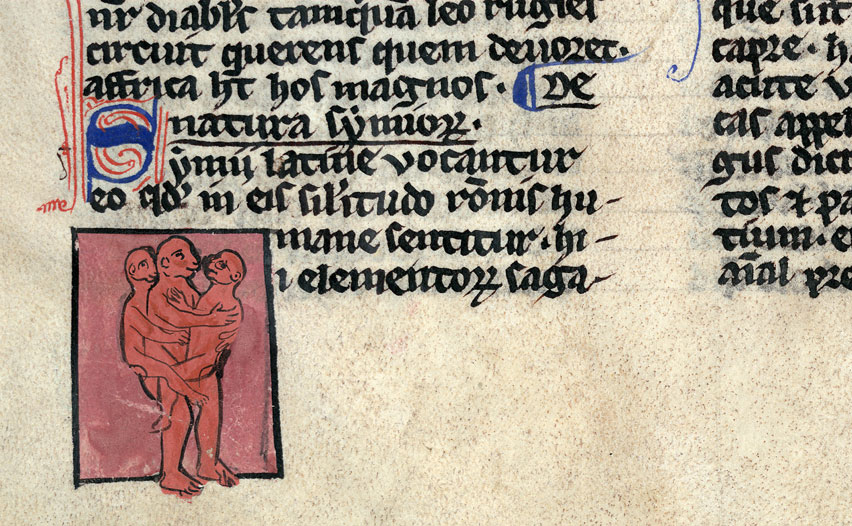 nr diabl's tamquā leo rugies
circuit querens quem deuoret·
affrica ht hos magnos· De
natura symiorꝝ·
Symij latine vocantur
eo qd' in eis sil'itudo rōnis hu-
mane sentitur· hi-
i elementorꝝ saga-
que sūt
capre· h
acute v
cas appel
gus dict
tos ⁊ pa
tium· e
aīal pre